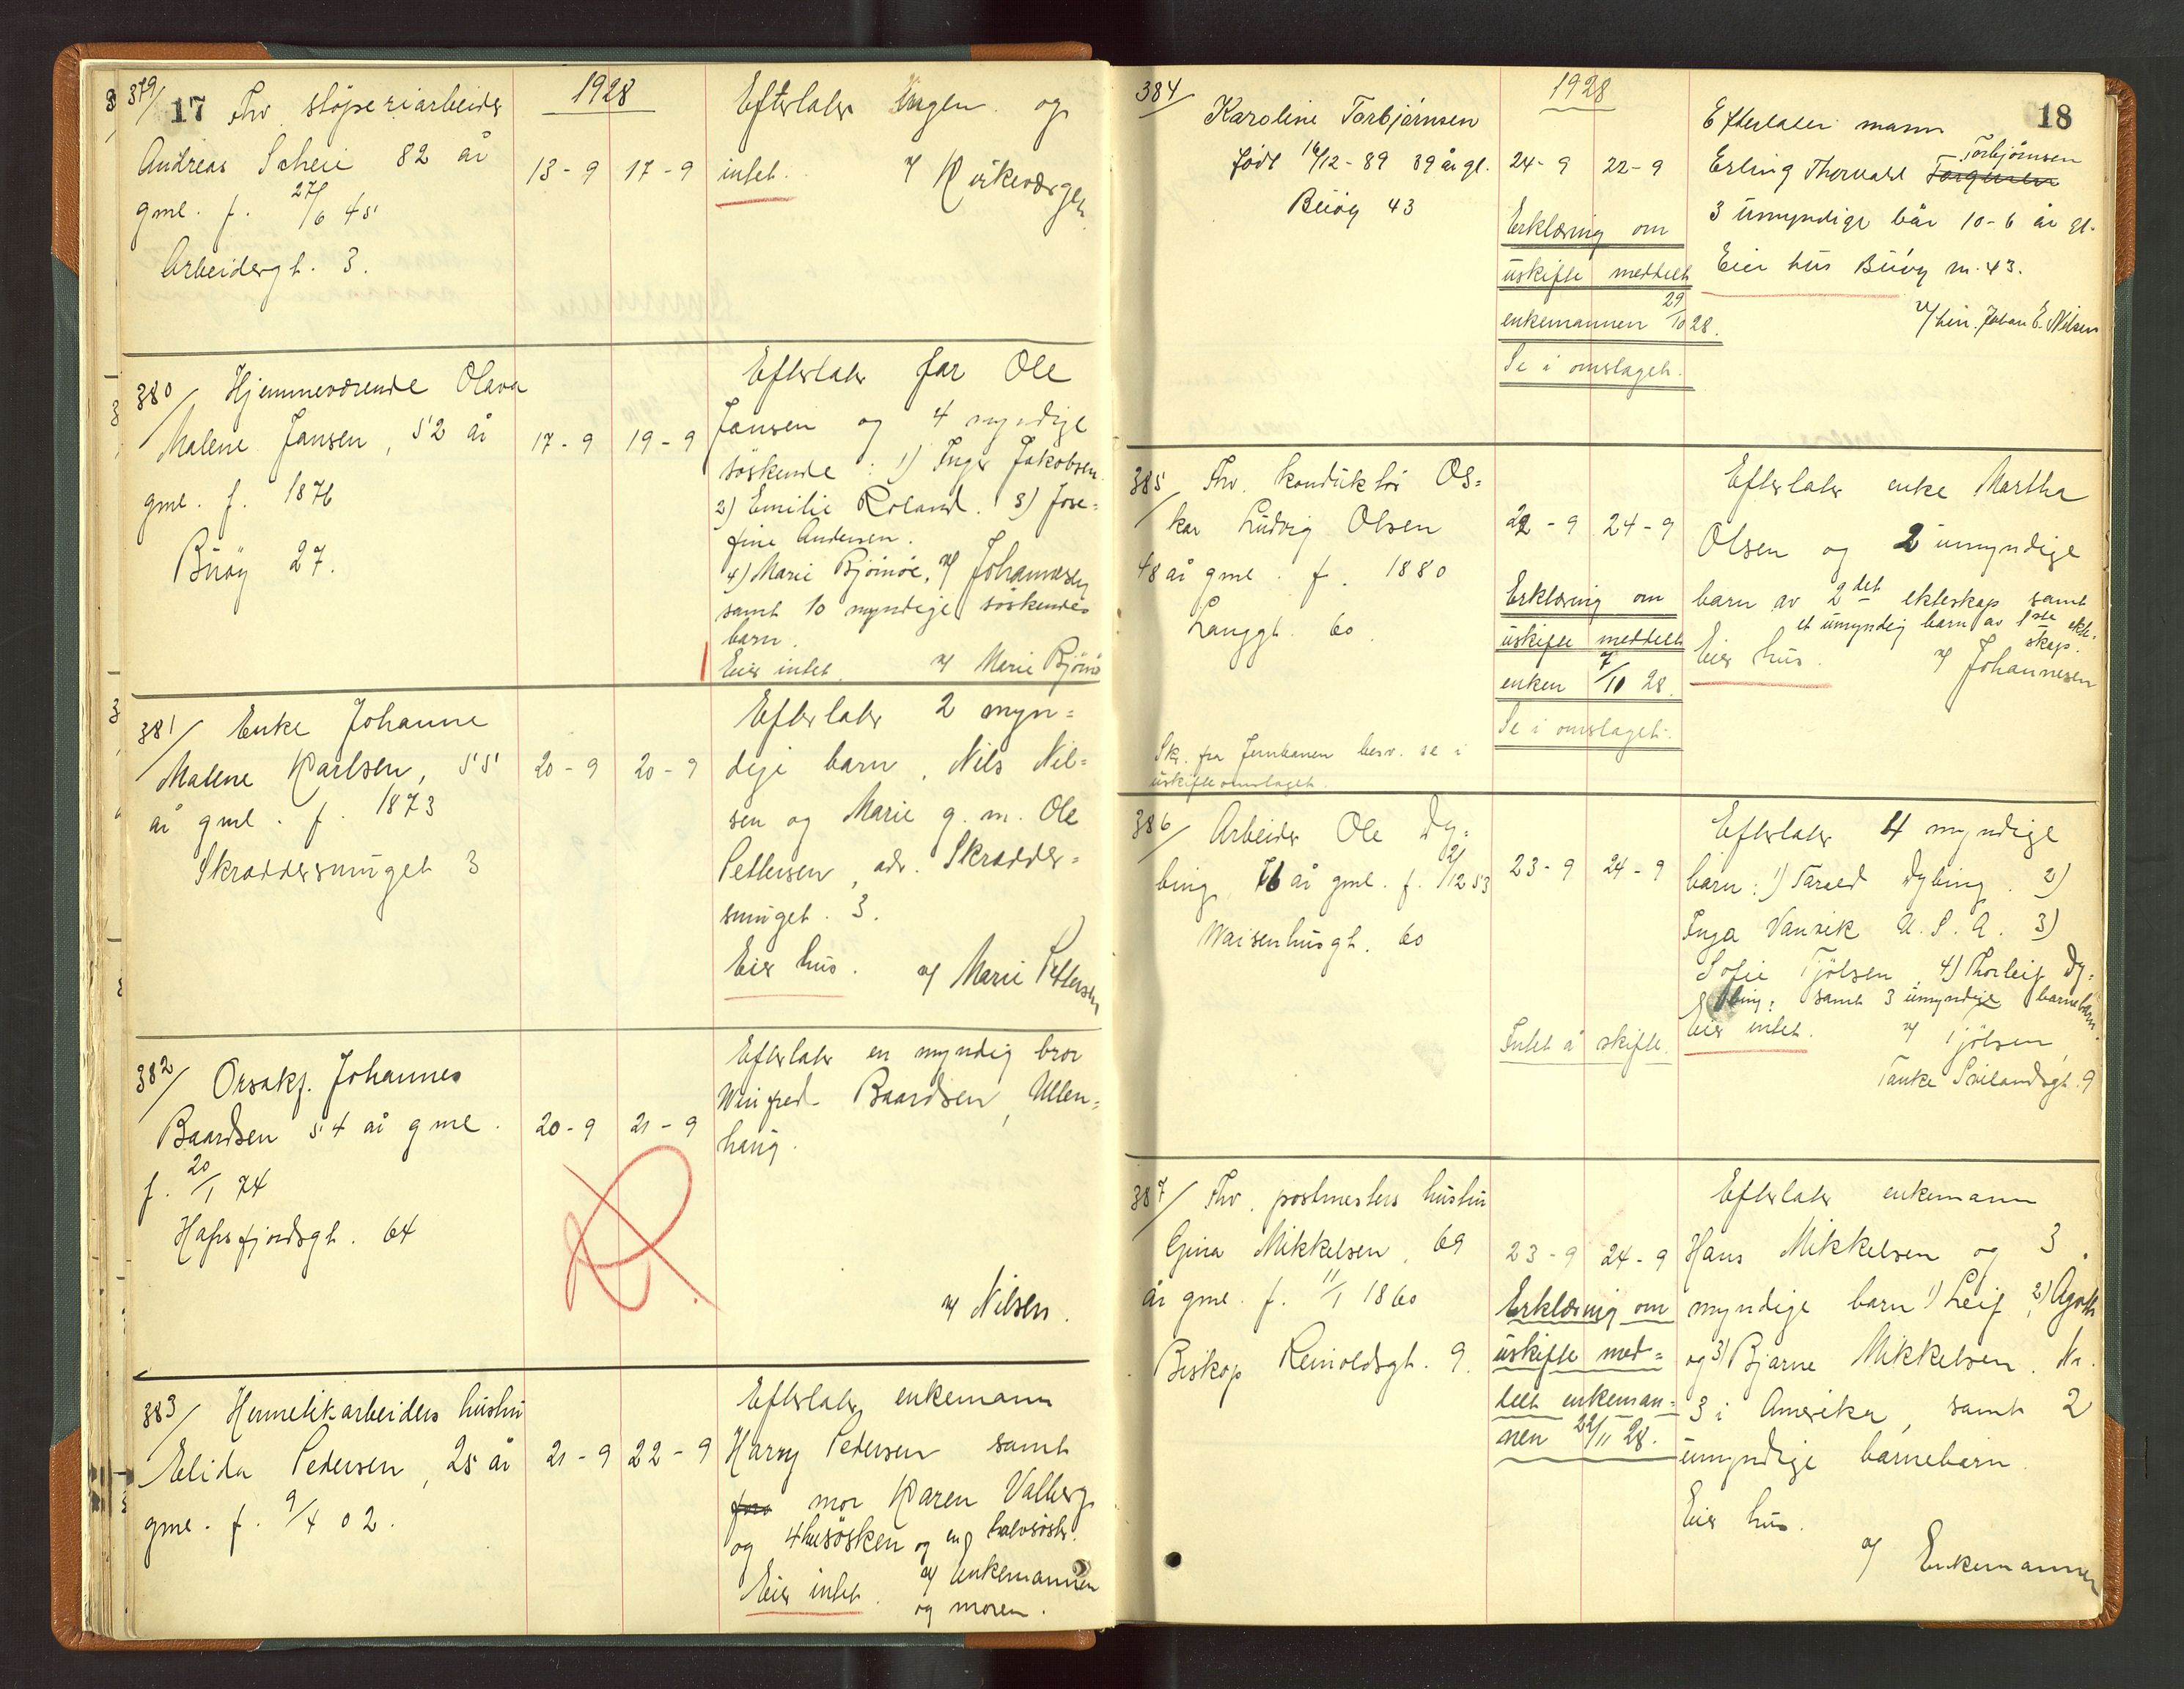 379/
17
Fhv. støperiarbeider
Andreas Scheie 82 år
gml. f. 27/6 45
Arbeidergt. 3.
1928
13-9 17-9
Efterlater Ingen og
intet.
v/ Kirkeværgen
380/ Hjemmeværende Olava
Malene Jansen, 52 år
gml. f. 1876
Buøy 27.
17-9 19-9
Efterlater far Ole
Jansen og 4 myndige
søskende: 1) Inger Jakobsen.
2) Emilie Roland. 3) Jose=
fine Andersen.
4) Marie Bjørnøe, v/ Johannesen
samt 10 myndige søskende=
barn.
Eier intet. v/ Marie Bjørnø
381/ Enke Johanne
Malene Karlsen, 55
år gml. f. 1873
Skreddersmuget 3
20-9 20-9
Efterlater 2 myn=
dige barn, Nils Nil=
sen og Marie g. m. Ole
Pettersen, adr. Skredder=
smuget. 3.
Eier hus. v/ Marie Pettersen
382/ Orsakf. Johannes
Baardsen 54 år gml.
f. 20/1 74
Hafrsfjordsgt. 64
20-9 21-9
Efterlater en myndig bror
Winfred Baardsen, Ullen=
haug.
v/ Nilsen.
383/ Hermetikarbeiders hustru
Elida Pedersen, 25 år
gml. f. 9/4 02.
21-9 22-9
Efterlater enkemann
Harry Pedersen samt
mor Karen Valberg
og 4 helsøsken og en halvsøster.
v/ Enkemannen
Eier intet. og moren.
384/
1928
18
Karoline Torbjørnsen
født 16/12-89 39 år gl.
Buøy 43
24-9 22-9
Erklæring om
uskifte meddelt
enkemannen 29/10 28.
Se i omslaget.
Efterlater mann
Torbjørnsen
Erling Thorvald
3 umyndige bår 10-6 år gl.
Eier hus Buøy nr. 43.
v/ Johan E. Nilsen
385/ Fhv. konduktør Os=
kar Ludvig Olsen
48 år gml. f. 1880
Langgt. 60.
22-9 24-9
Erklæring om
uskifte meddelt
enken 7/10 28.
Se i omslaget.
Skr. fra Jernbanen besv. se i
uskifteomslaget.
Efterlater enke Martha
Olsen og 2 umyndige
barn av 2det ekteskap samt
et umyndig barn av 1ste ekte=
skap.
Eier hus. v/ Johannesen
386/ Arbeider Ole Dy=
bing, 76 år gml. f. 21/12 53
Waisenhusgt. 60
23-9 24-9
Intet å skifte.
Efterlater 4 myndige
barn: 1) Tarald Dybing. 2)
Inga Vanvik U.S.A. 3)
Sofie Tjølsen, 4) Thorleif Dy=
bing: samt 3 umyndige barnebarn.
Eier intet. v/ Tjølsen
Tanke Svilandsgt. 9
387/ Fhv. postmesters hustru
Gina Mikkelsen, 69
år gml. f. 11/1 1860
Biskop Reinoldsgt. 9.
23-9 24-9
Erklæring om
uskifte med=
delt enkeman=
nen 22/11 28.
Efterlater enkemann
Hans Mikkelsen og 3
myndige barn 1) Leif, 2) Agath
og 3) Bjarne Mikkelsen. Nr.
3 i Amerika, samt 2
umyndige barnebarn.
Eier hus.
v/ Enkemannen